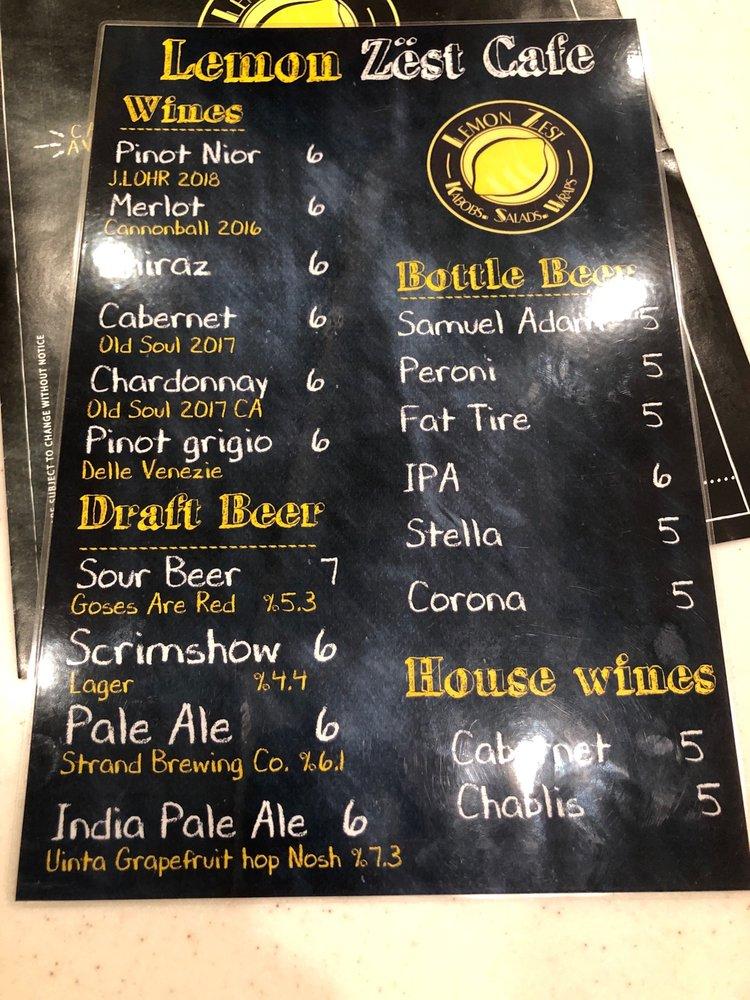 Lemon Zëst Cafe
Wines
Pinot Nior 6
J.LOHR 2018
Merlot 6
Cannonball 2016
Shiraz 6
Cabernet 6
Old Soul 2017
Chardonnay 6
Old Soul 2017 CA
Pinot grigio 6
Delle Venezie
Draft Beer
Sour Beer 7
Goses Are Red %5.3
Scrimshow 6
Lager %4.4
Pale Ale 6
Strand Brewing Co. %6.1
India Pale Ale 6
Uinta Grapefruit hop Nosh %7.3
LEMON ZEST
KABOBS. SALADS. WRAPS
Bottle Beer
Samuel Adams 5
Peroni 5
Fat Tire 5
IPA 6
Stella 5
Corona 5
House wines
Cabernet 5
Chablis 5
SUBJECT TO CHANGE WITHOUT NOTICE